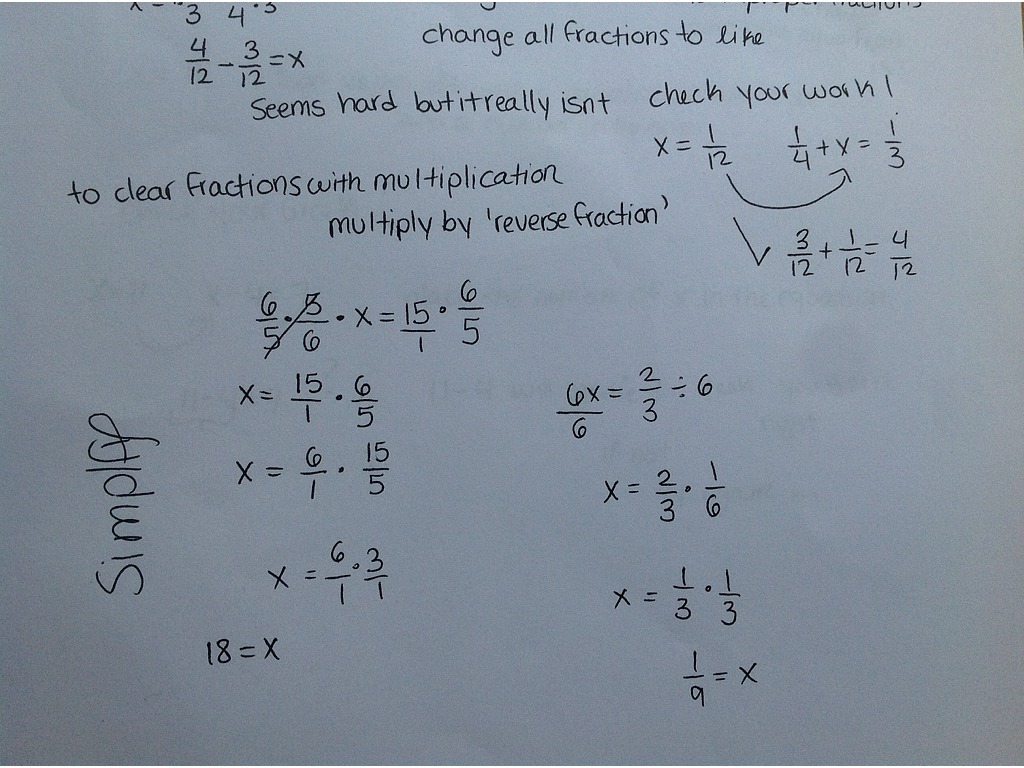 3 4 · 3
change all fractions to like
4/12 - 3/12 = x
Seems hard but it really isnt
check your work!
x = 1/12 1/4 + x = 1/3
to clear fractions with multiplication
multiply by 'reverse fraction'
3/12 + 1/12 = 4/12
6/5 · 5/6 · x = 15/1 · 6/5
x = 15/1 · 6/5
x = 6/1 · 15/5
x = 6/1 · 3/1
18 = x
Simplify
6x/6 = 2/3 ÷ 6
x = 2/3 · 1/6
x = 1/3 · 1/3
1/9 = x